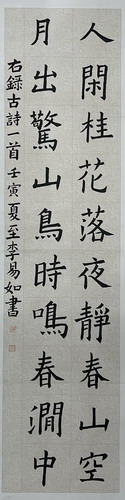 人閑桂花落夜靜春山空
月出驚山鳥時鳴春澗中
右錄古詩一首壬寅夏至李易如書